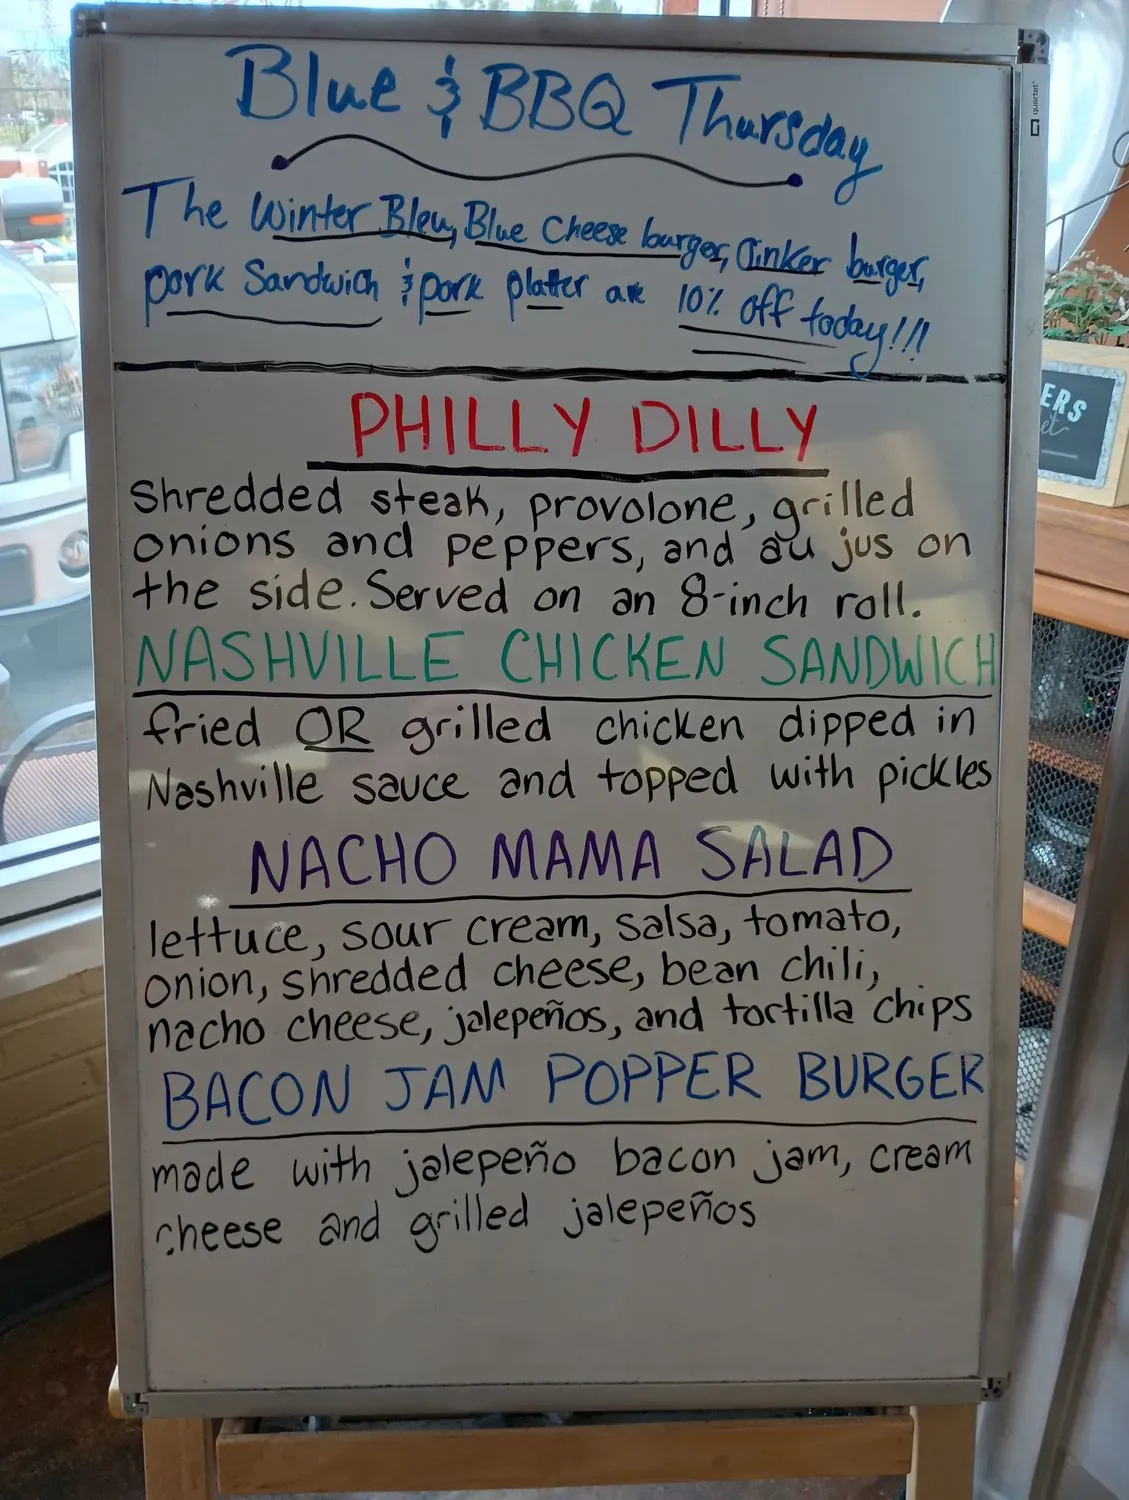 Blue & BBQ Thursday
The Winter Bleu, Blue Cheese burger, Clinker burger,
pork Sandwich & pork platter are 10% off today!!!
PHILLY DILLY
Shredded steak, provolone, grilled
onions and peppers, and au jus on
the side. Served on an 8-inch roll.
NASHVILLE CHICKEN SANDWICH
fried OR grilled chicken dipped in
Nashville sauce and topped with pickles
NACHO MAMA SALAD
lettuce, sour cream, salsa, tomato,
onion, shredded cheese, bean chili,
nacho cheese, jalepeños, and tortilla chips
BACON JAM POPPER BURGER
made with jalepeño bacon jam, cream
cheese and grilled jalepeños
quartet